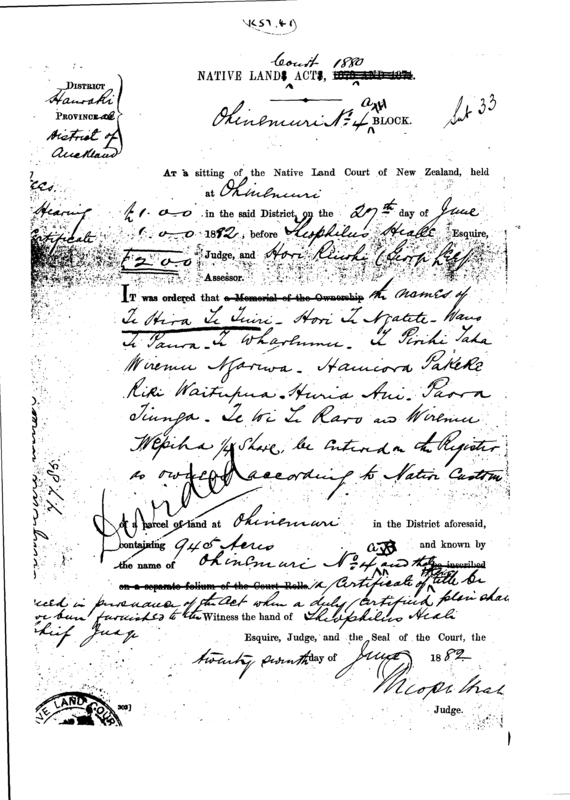 Court 1880
NATIVE LANDS ACTS, 1873 AND 1874.
DISTRICT
Hauraki
PROVINCE
District of
Auckland
Ohinemuri No. 4 a BLOCK.
AT a sitting of the Native Land Court of New Zealand, held
at Ohinemuri
Hearing £1.0.0 in the said District, on the 27th day of June
Certificate 1.0.0 1882, before Theophilus Heale Esquire,
£2.0.0 Judge, and Hori
Assessor.
IT was ordered that a Memorial of the Ownership the names of
Te Hira Te Tuiri - Hori Te Ngatete -
Te Paura - Te Wharenumu - Te Pirihi Taha
Wiremu Ngaruwa - Hamiora Pakeke
Riki Waitupua - Huria Ani - Paora
Tiunga - Te Wi Te Raro and Wiremu
Wepiha ½ Share, be entered on the Register
as owners according to Native Custom
of a parcel of land at Ohinemuri in the District aforesaid,
containing 945 Acres and known by
the name of Ohinemuri No. 4 a and that be inscribed
on a separate folium of the Court Rolls a Certificate of title be
in pursuance of the Act when a duly Certified plan shall
been furnished to the Witness the hand of Theophilus Heale
Chief Judge Esquire, Judge, and the Seal of the Court, the
twenty seventh day of June 1882
Theops Heale
Judge.
303]
LAND COURT